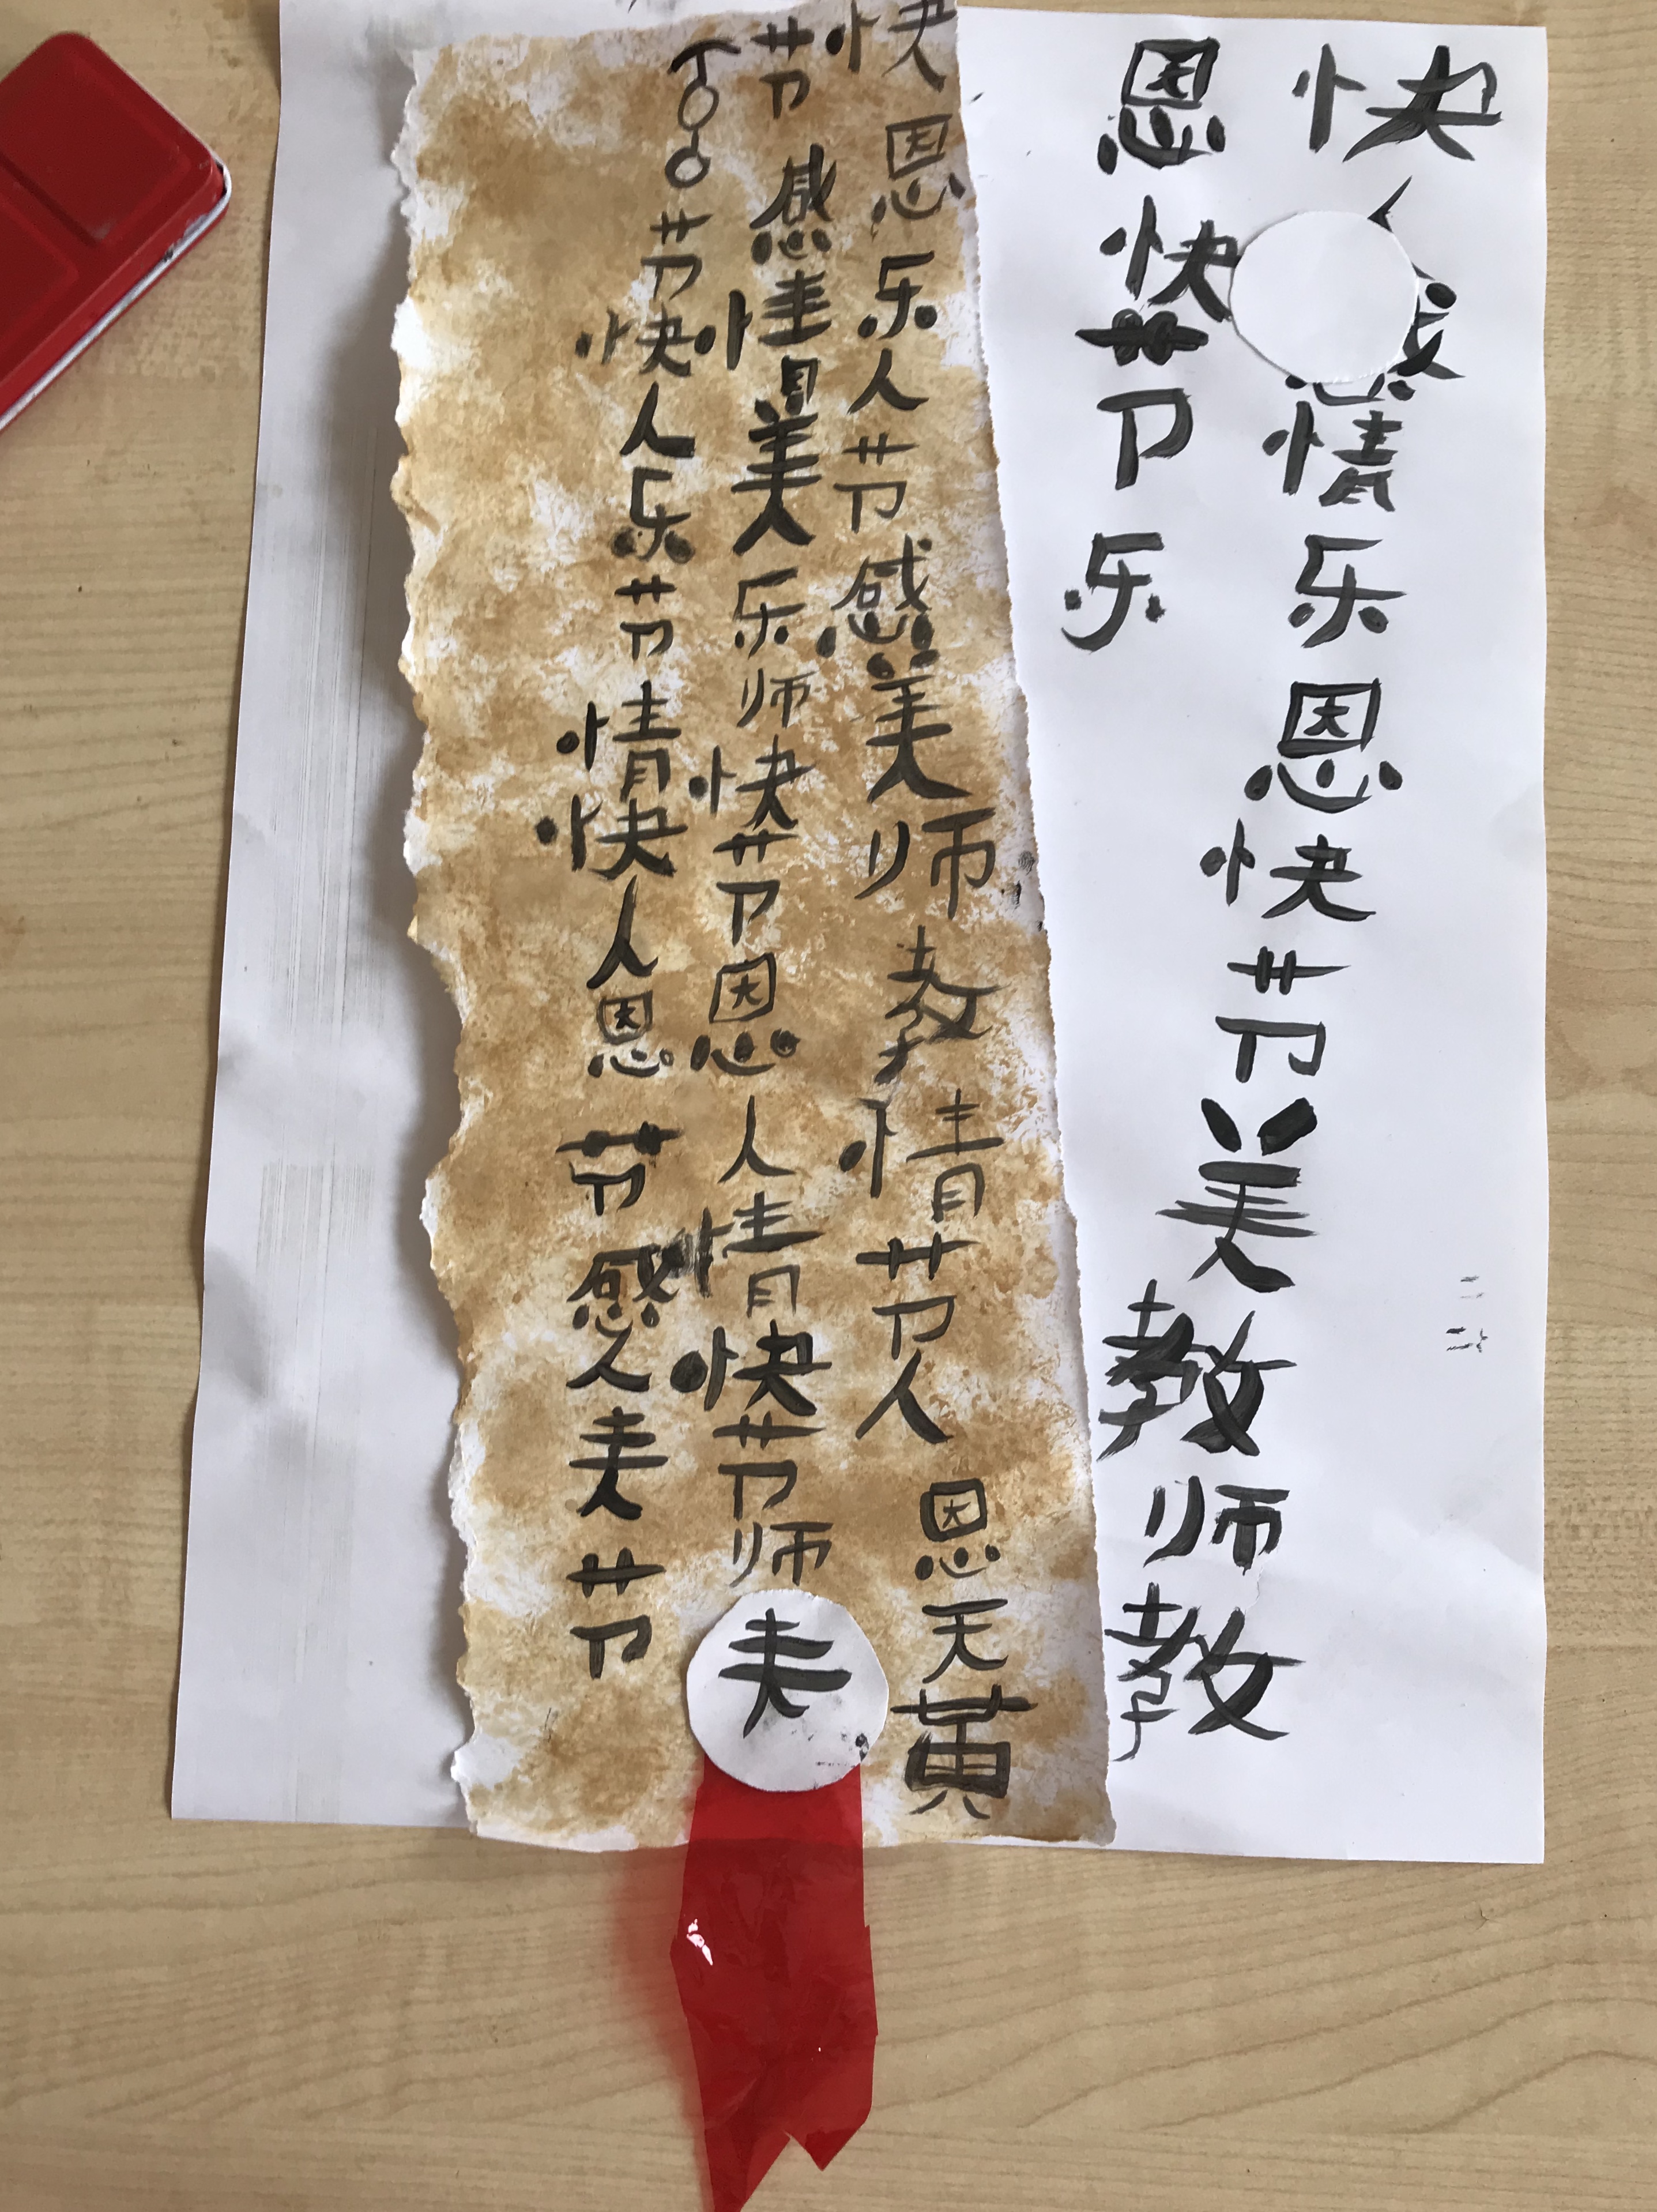 快人情乐恩快节美教师教
恩快节乐
快恩乐人节感美师教情节人恩天黄
节感情美乐师快节恩人情快节师
节快人乐节情快人恩节感人美节